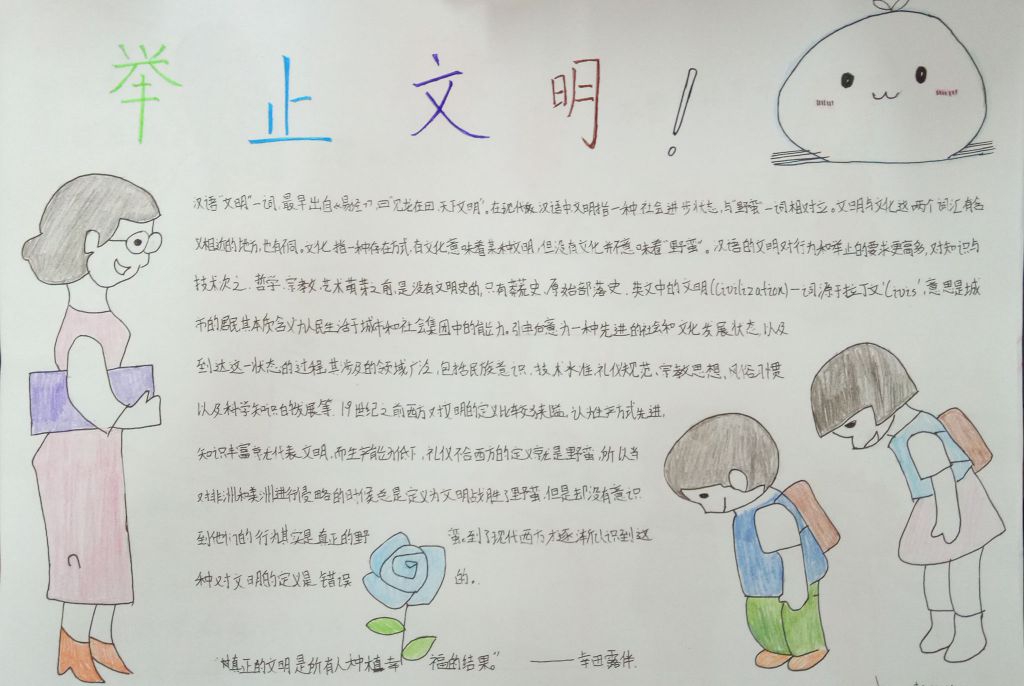 举止文明！
汉语"文明"一词,最早出自《易经》,曰"见龙在田,天下文明"。在现代汉语中文明指一种社会进步状态,与"野蛮"一词相对立。文明与文化这两个词汇有含
义相近的地方,也有不同。文化指一种存在方式,有文化意味着某种文明,但没有文化并不意味着"野蛮"。汉语的文明对行为和举止的要求更高多,对知识与
技术次之.哲学,宗教,艺术萌芽之前,是没有文明史的,只有蔡荒史,原始部落史.英文中的文明(Civilization)一词源于拉丁文'Civis',意思是城
市的居民,其本质含义为人民生活于城市和社会集团中的能力。引申后意为一种先进的社会和文化发展状态,以及
到达这一状态的过程,其涉及的领域广泛,包括民族意识、技术水准、礼仪规范、宗教思想、风俗习惯
以及科学知识的发展等.19世纪之前西方对文明的定义比较狭隘.认为生产方式先进,
知识丰富就代表文明,而生产能力低下,礼仪不合西方的定义就是野蛮,所以当
对非洲和美洲进行侵略的时候总是定义为文明战胜了野蛮,但是却没有意识
到他们的行为其实是真正的野蛮。到了现代西方才逐渐认识到这
种对文明的定义是错误的。
"真正的文明是所有人种植幸福的结果。" ——幸田露伴.